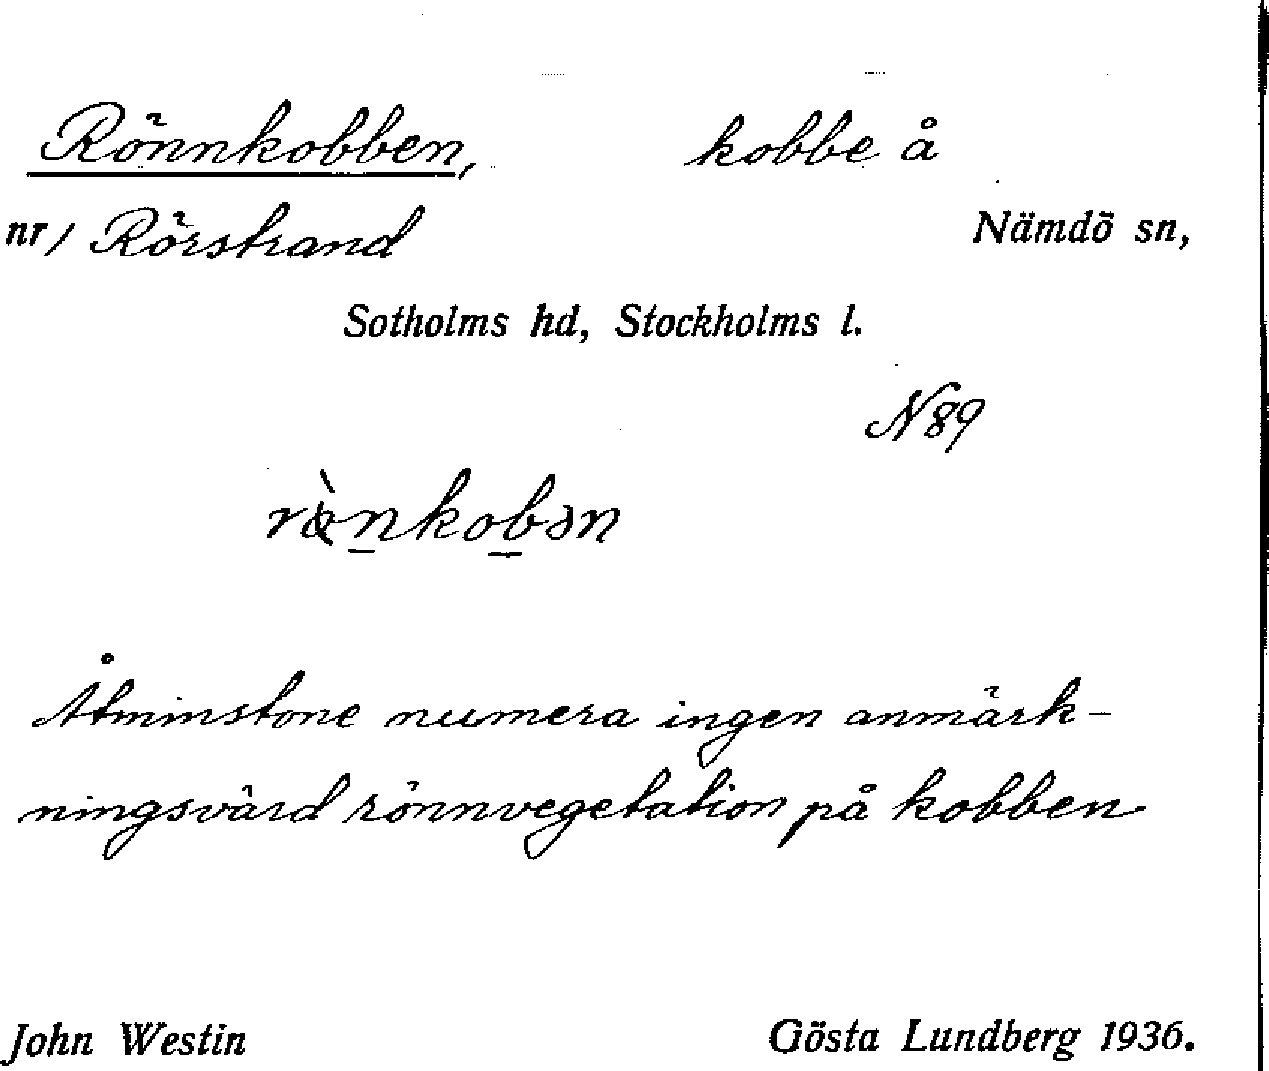 Rönnkobben, kobbe å
nr/ Rörstrand Nämdö sn,
Sotholms hd, Stockholms l.
N89
Åtminstone numera ingen anmärk-
ningsvärd rönnvegetation på kobben
John Westin Gösta Lundberg 1936.